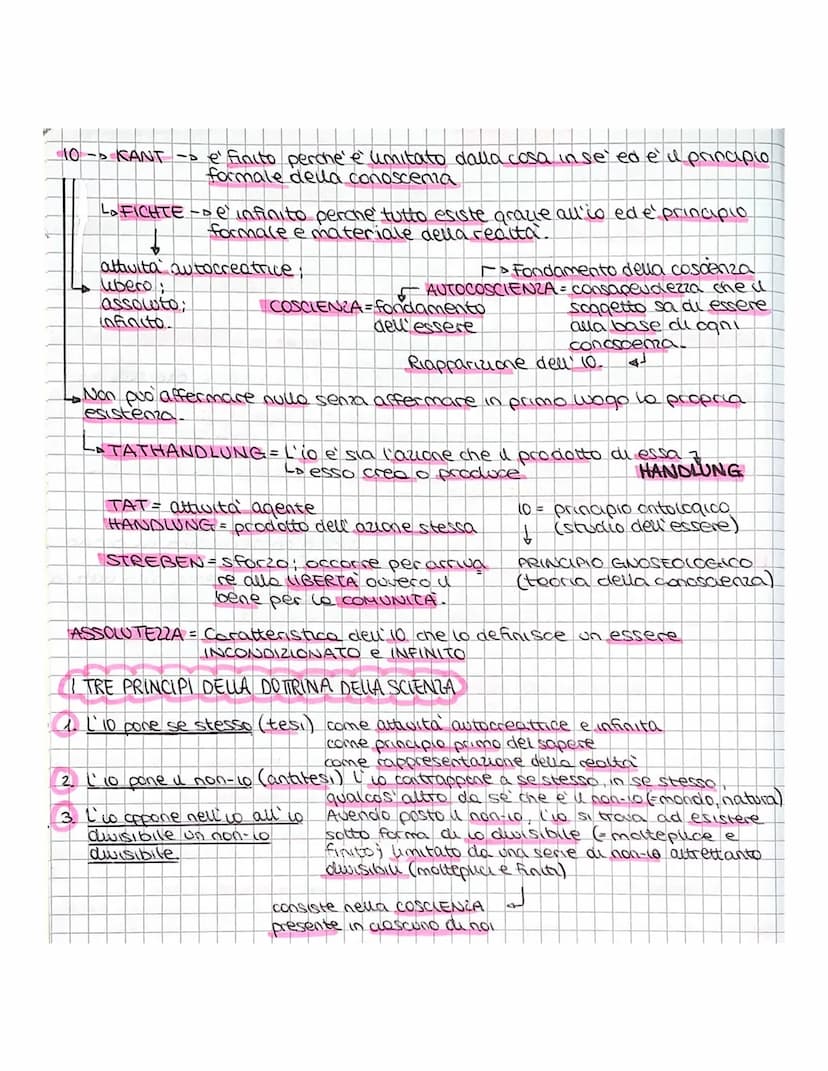 IO -> KANT -> e' finito perche' e' limitato dalla cosa in se' ed e' il principio
formale della conoscenza
FICHTE -> e' infinito perche' tutto esiste grazie all'io ed e' principio
formale e materiale della realtà.
attivita' autocreatrice;
libero;
assoluto;
infinito.
Fondamento della coscienza
AUTOCOSCIENZA = consapevolezza che il
soggetto sa di essere
alla base di ogni
conoscenza.
COSCIENZA = fondamento
dell'essere
Riapparizione dell'IO.
Non puo' affermare nulla senza affermare in primo luogo la propria
esistenza.
TATHANDLUNG = L'io e' sia l'azione che il prodotto di essa
esso crea o produce
HANDLUNG
TAT = attività agente
HANDLUNG = prodotto dell'azione stessa
IO = principio ontologico
(studio dell'essere)
PRINCIPIO GNOSEOLOGICO
(teoria della conoscienza)
STREBEN = sforzo; occorre per arriva
re alla LIBERTA' ovvero il
bene per la COMUNITA'.
ASSOLUTEZZA = Caratteristica dell'IO che lo definisce un essere
INCONDIZIONATO e INFINITO
I TRE PRINCIPI DELLA DOTTRINA DELLA SCIENZA
1. L'IO pone se stesso (tesi) come attivita' autocreatrice e infinita
come principio primo del sapere
come rappresentazione della realtà
2. L'io pone il non-io (antitesi) L'io contrappone a se stesso, in se stesso,
qualcos'altro da se' che e' il non-io (= mondo, natura)
3. L'io oppone nell'io all'io
divisibile un non-io
divisibile.
Avendo posto il non-io, l'io si trova ad esistere
sotto forma di io divisibile (= molteplice e
finito) limitato da una serie di non-io altrettanto
divisibili (molteplici e finiti)
consiste nella COSCIENZA
presente in ciascuno di noi